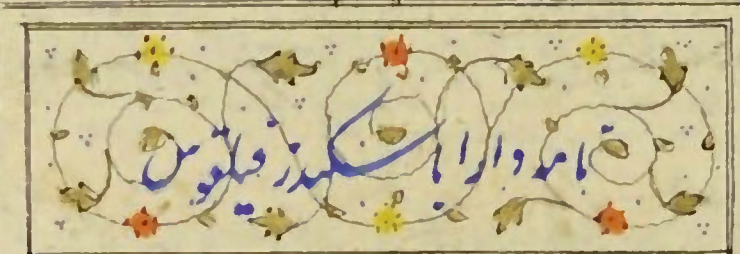 نامه دارا باسکندر فیلقوس